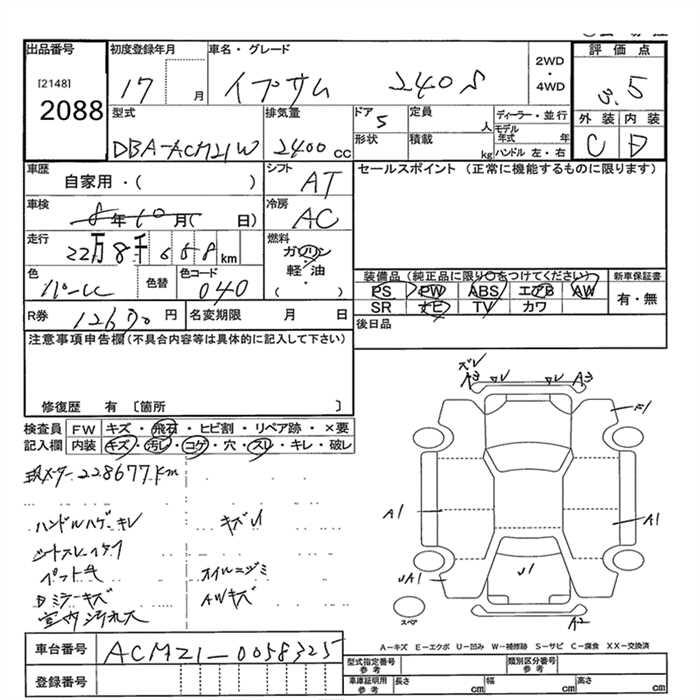 出品番号 初度登録年月 車名・グレード 2WD・4WD 評価点
[2148] 2088
17 月 イプサム 240S 3.5
型式 排気量 ドア 定員 ディーラー・並行 外装 内装
DBA-ACM21W 2400cc 5 人 モデル年式 年 C D
形状 積載 kg ハンドル 左・右
車歴 自家用・( ) シフト AT セールスポイント (正常に機能するものに限ります)
車検 8年10月( 日) 冷房 AC
走行 22万8千658km 燃料 ガソリン・軽油・( )
色 パール 色替 色コード 040
装備品(純正品に限り○をつけてください) 新車保証書
PS PW ABS エアB AW 有・無
SR ナビ TV カワ
R券 円 名変期限 月 日 後日品
注意事項申告欄(不具合内容等は具体的に記入して下さい)
修復歴 有〔箇所 〕
検査員記入欄 FW キズ・飛石・ヒビ割・リペア跡・×要
内装 キズ・汚レ・コゲ・穴・スレ・キレ・破レ
現メーター228677km
ハンドルハゲ・キレ キズU
ペット毛 オイルニジミ
Dミラーキズ AWキズ
室内汚れ大
ズレ
A3 A3
F1
A1 A1
UA1 U1
スペア A2
A-キズ E-エクボ U-凹み W-補修跡 S-サビ C-腐食 XX-交換済
車台番号 ACM21-0058325
登録番号
型式指定番号 参考 類別区分番号 参考
車庫証明用 参考 長さ cm 幅 cm 高さ cm